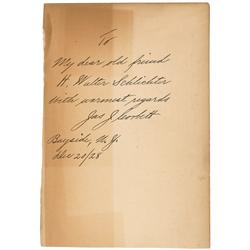 To
My dear old friend
H. Walter Schlichter
With warmest regards
Jas J. Corbett
Bayside, N.Y.
Dec 20/28